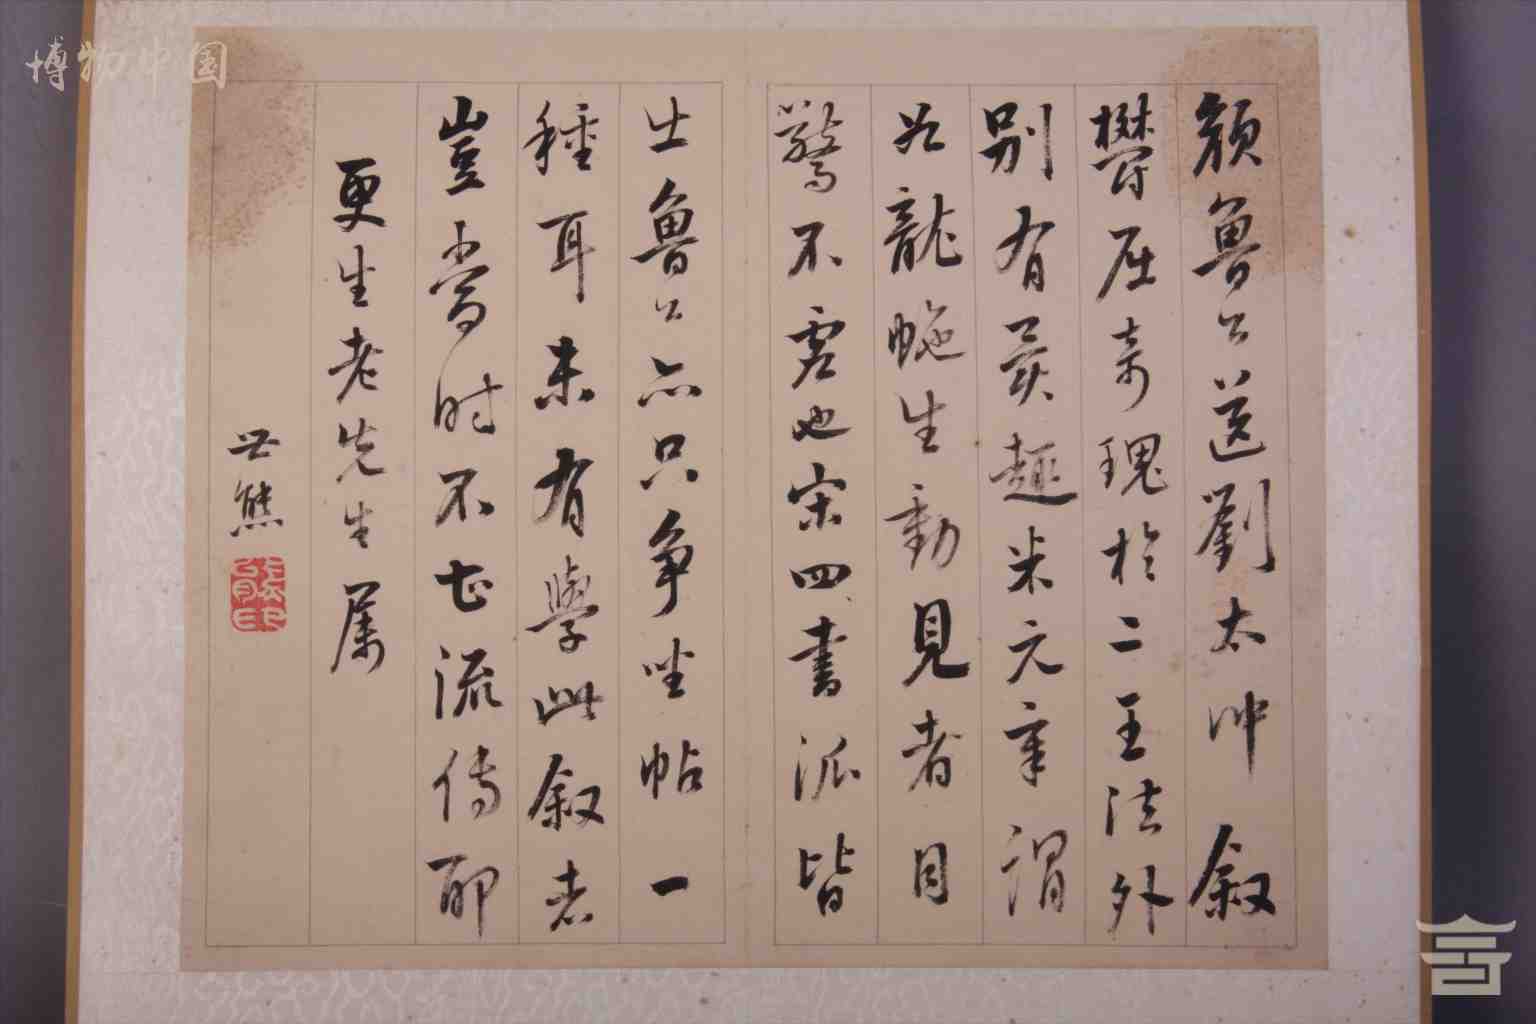 顔魯公送劉太冲叙
欝屈奇瑰於二王法外
别有異趣米元章謂
龍虵生動見者目
驚不虛也宋四書派皆
出魯公亦只争坐帖一
種耳未有學此叙者
豈當時不甚流傳耶
更生老先生属
世熊
博物中国